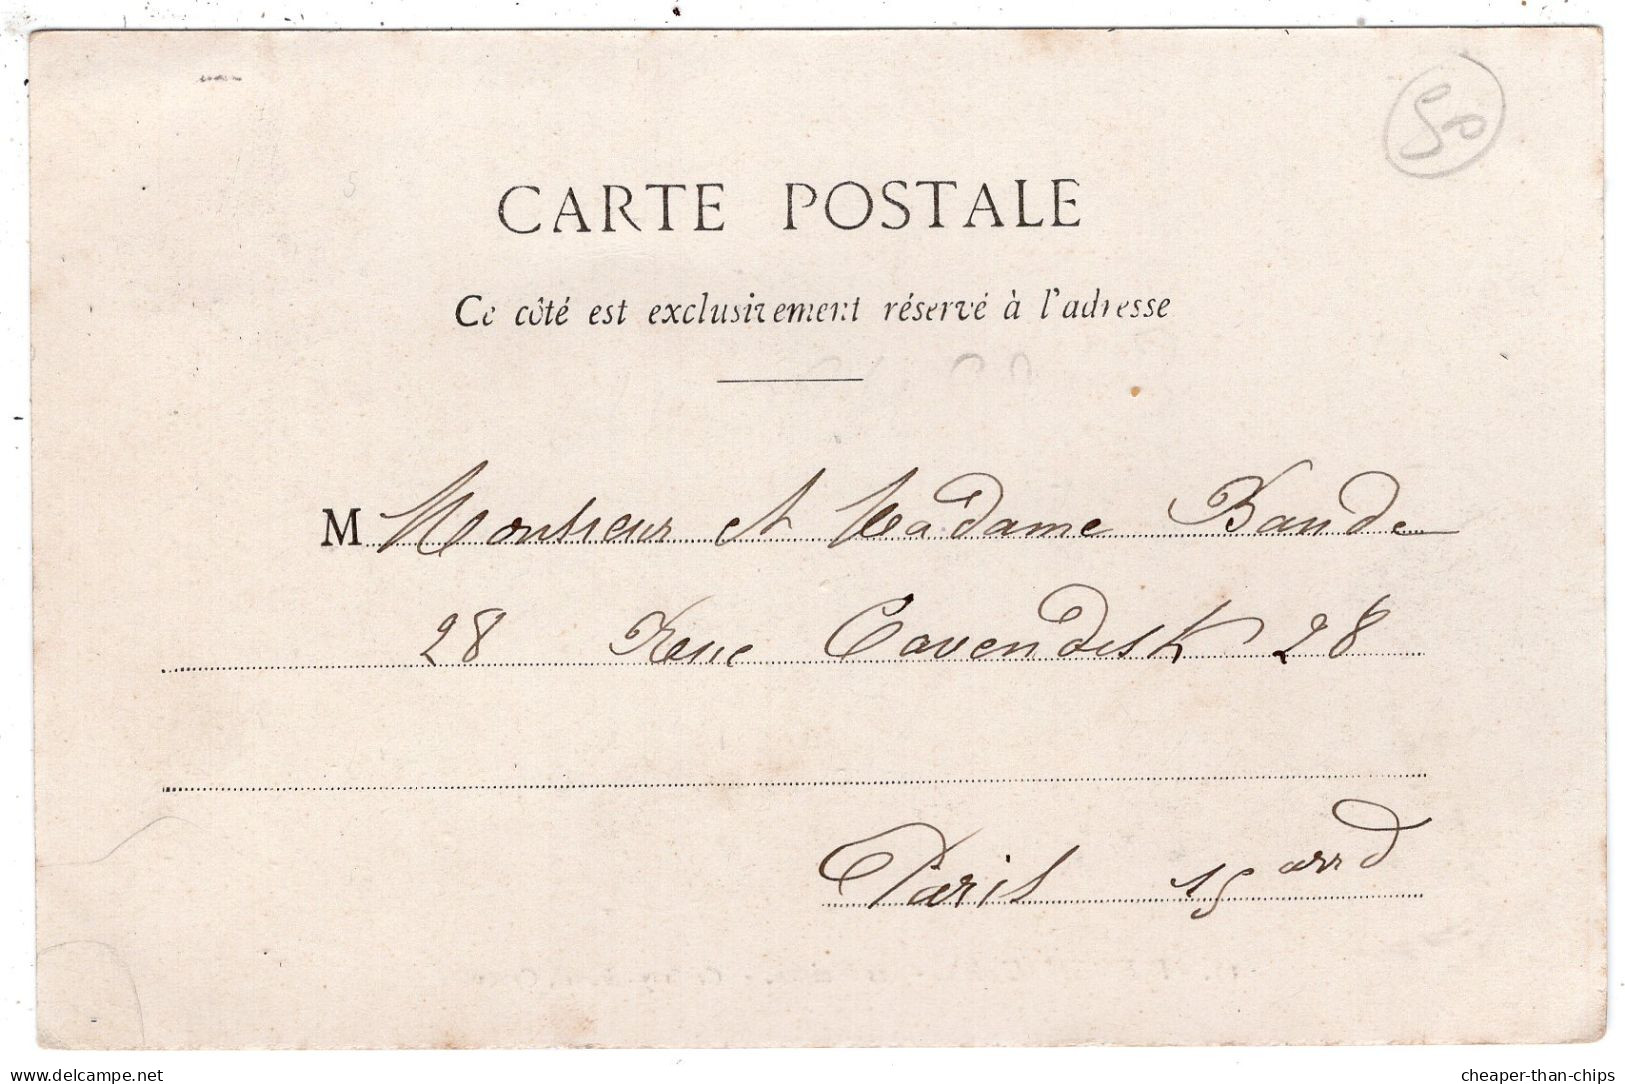 50
CARTE POSTALE
Ce côté est exclusivement réservé à l'adresse
M Monsieur et Madame Bande
28 Rue Cavendish 28
Paris 19 arrd
delcampe.net
cheaper-than-chips